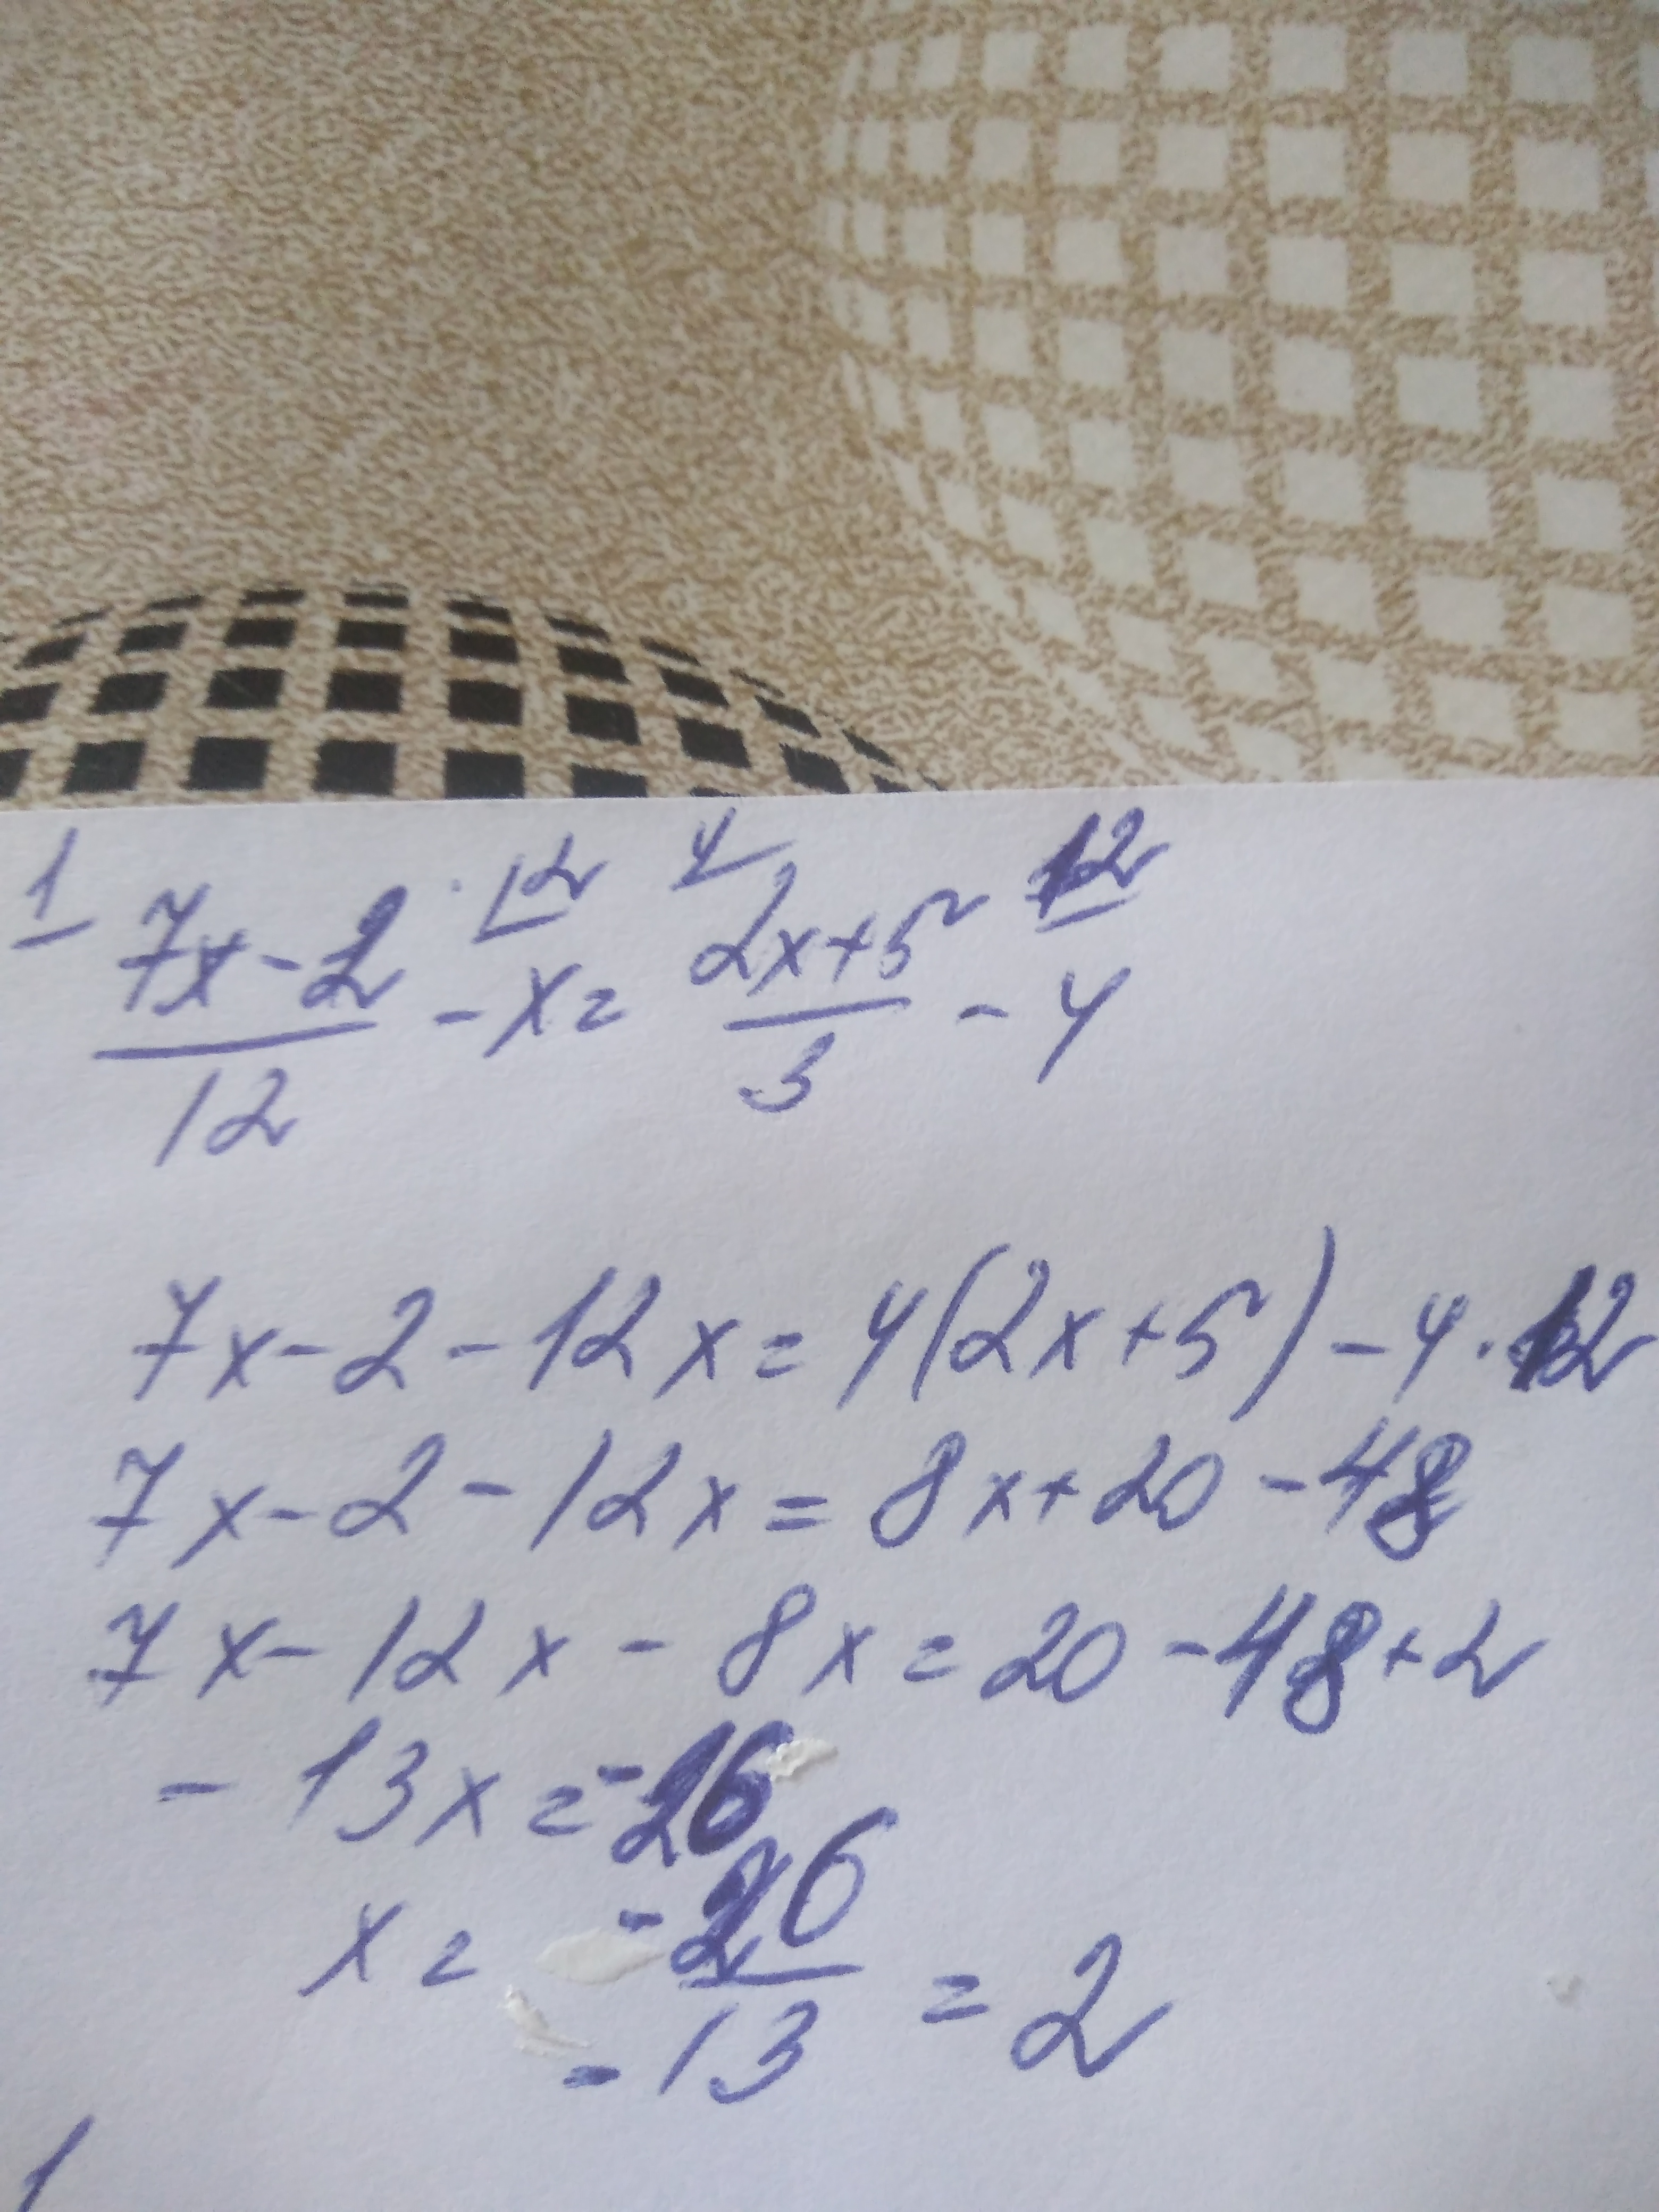 1 7x-2/12 ·12 - x = 4 2x+5/3 - 4 12
7x-2-12x=4(2x+5)-4·12
7x-2-12x=8x+20-48
7x-12x-8x=20-48+2
-13x=-26
x=-26/-13=2
1